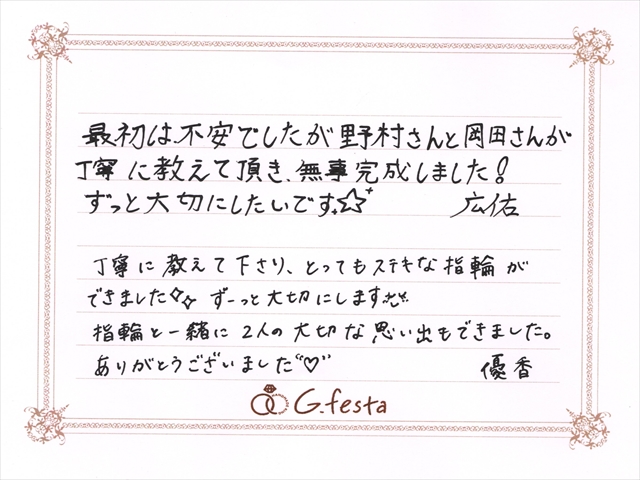 最初は不安でしたが野村さんと岡田さんが
丁寧に教えて頂き、無事完成しました!
ずっと大切にしたいです。☆☆ 広佑
丁寧に教えて下さり、とってもステキな指輪が
できました✧✧ ずーっと大切にします
指輪と一緒に2人の大切な思い出もできました。
ありがとうございました"♡" 優香
G.festa